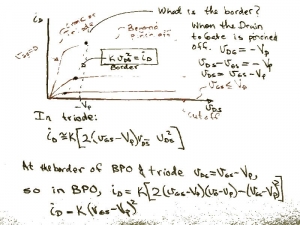 What is the border?
iD
triode or
ohmic
Beyond
pinch off
When the Drain
to Gate is pinched
off. vDG = -Vp
vDS - vGS = -Vp
vDS = vGS - Vp
K vDS² = iD
Border
vGS ≤ Vp
-Vp
vDS
cutoff
In triode:
iD ≅ K[2(vGS-Vp)vDS vDS²]
At the border of BPO & triode vDS = vGS-Vp,
so in BPO, iD = K[2(vGS-Vp)(vGS-Vp)-(vGS-Vp)²]
iD = K(vGS-Vp)²